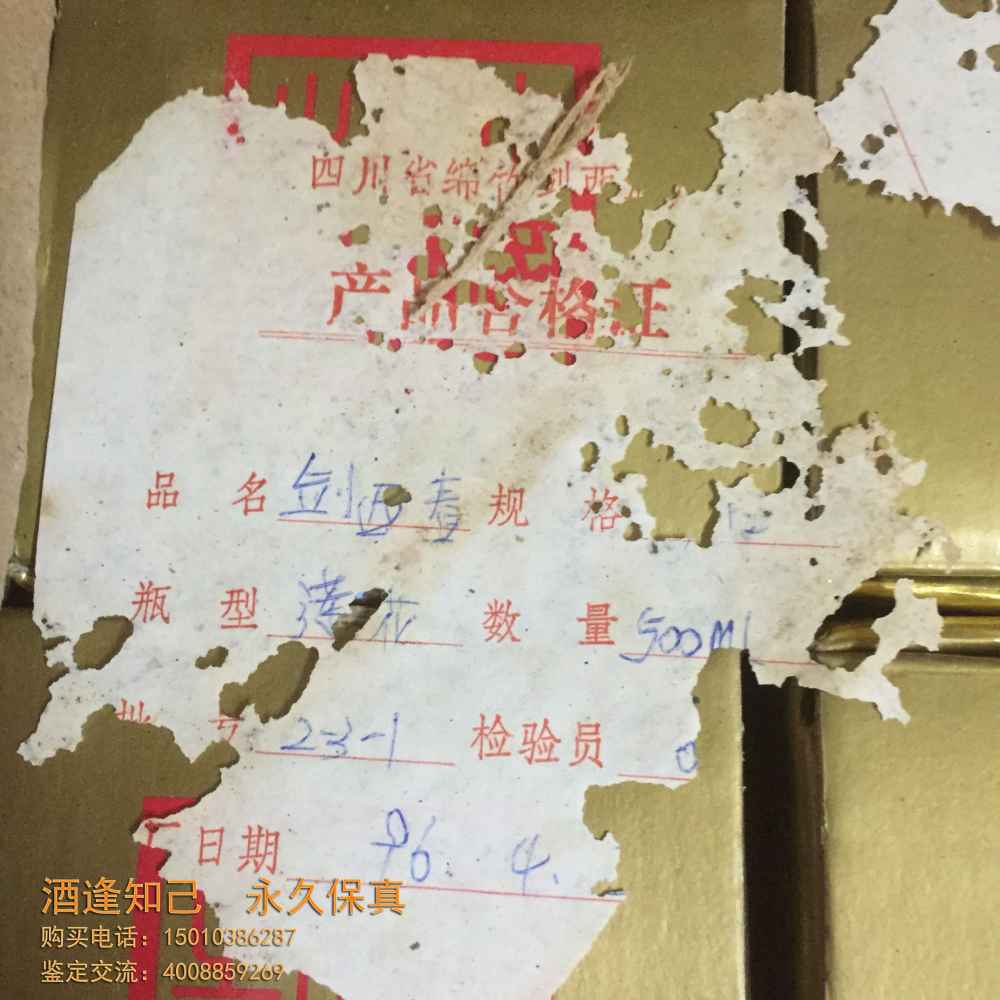 四川省绵竹剑西
产品合格证
品 名 剑西春 规 格
瓶 型 数 量 500Ml
批 号 23-1 检验员
日期 96. 4.
酒逢知己 永久保真
购买电话：15010386287
鉴定交流：4008859269